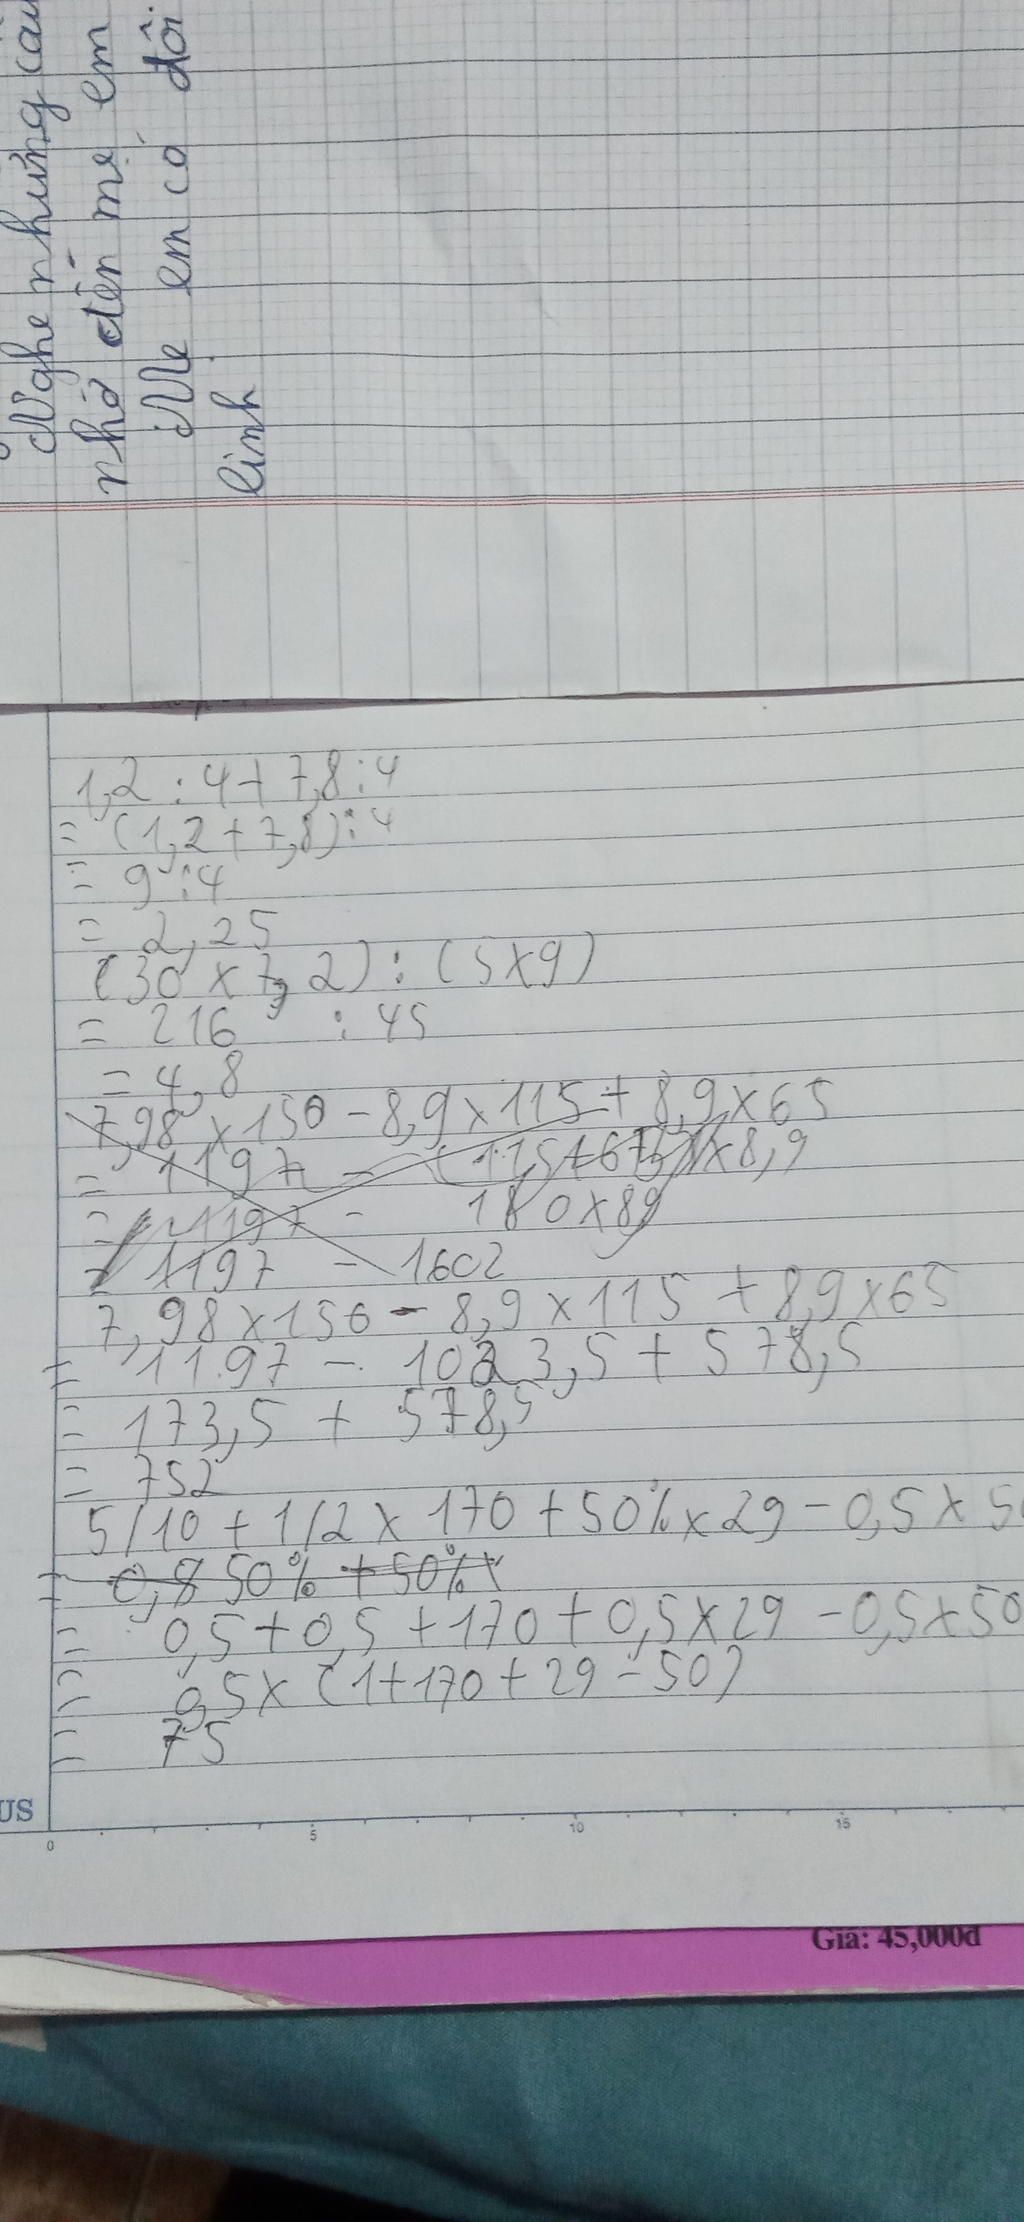 Nghe những câu
nhớ đến mẹ em
Mẹ em có đôi
linh
1,2 : 4 + 7,8 : 4
= (1,2 + 7,8) : 4
= 9 : 4
= 2,25
(30 x 7,2) : (5 x 9)
= 216 : 45
= 4,8
7,98 x 150 - 8,9 x 115 + 8,9 x 65
= 1197 - (115+65) x 8,9
= 1197 - 180 x 89
= 1197 - 1602
7,98 x 150 - 8,9 x 115 + 8,9 x 65
= 1197 - 1023,5 + 578,5
= 173,5 + 578,5
= 752
5/10 + 1/2 x 170 + 50% x 29 - 0,5 x 50
= 0,8 50% + 50% x
= 0,5 + 0,5 + 170 + 0,5 x 29 - 0,5 x 50
= 0,5 x (1 + 170 + 29 - 50)
= 75
US
0 5 10 15
Giá: 45,000đ